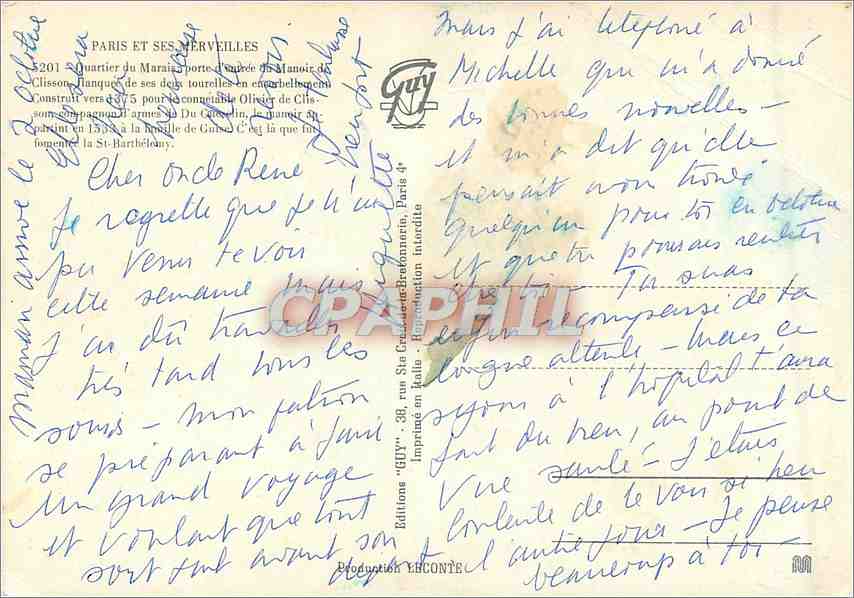 PARIS ET SES MERVEILLES
5201 - Quartier du Marais, porte d'entrée du Manoir de
Clisson, flanquée de ses deux tourelles en encorbellement
Construit vers 1375 pour le connétable Olivier de Clis-
son, compagnon d'armes de Du Guesclin, le manoir ap-
partint en 1553 à la famille de Guise. C'est là que fut
fomentée la St-Barthélemy.
Guy
Cher oncle René
Je regrette que je n'ai
pu venir te voir
cette semaine mais
j'ai dû travailler
très tard tous les
soirs - mon patron
se préparant à faire
un grand voyage
et voulant que tout
soit fait avant son
départ
Mais j'ai téléphoné à
Michelle qui m'a donné
des bonnes nouvelles -
et m'a dit qu'elle
pensait avoir trouvé
quelqu'un pour toi en octobre
et que tu pourrais rentrer
chez toi - Tu seras
enfin récompensé de ta
longue attente - Mais ce
séjour à l'hôpital t'aura
fait du bien, au point de
vue santé - J'étais
contente de te voir si bien
l'autre jour - Je pense
beaucoup à toi -
maman arrive le 2 octobre
Toulouse
Editions "GUY" - 38, rue Ste Croix-de-la-Bretonnerie, Paris 4e
Imprimé en Italie - Reproduction interdite
Production LECONTE
CPAPHIL